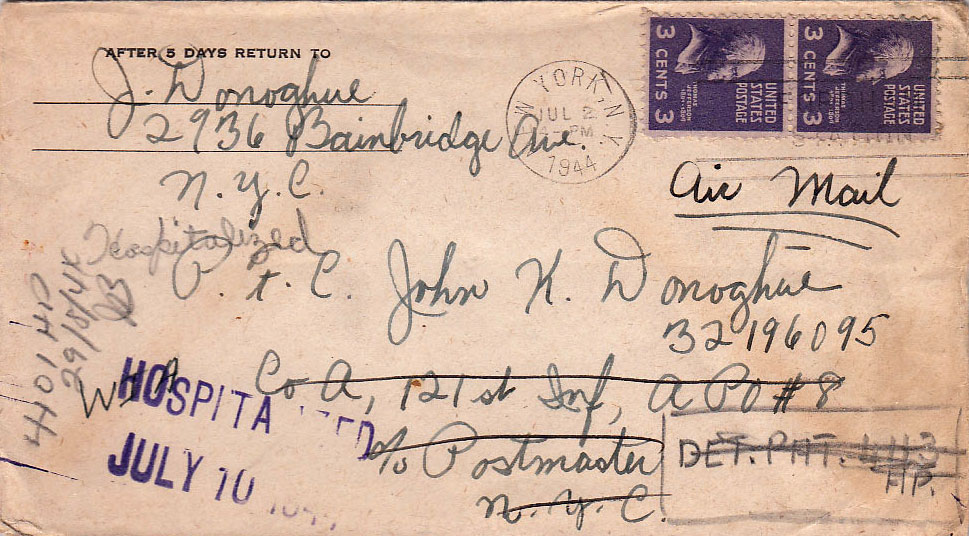 AFTER 5 DAYS RETURN TO
J. Donoghue
2936 Bainbridge Ave.
N.Y.C.
YORK, N.Y.
JUL 2
PM
1944
3 CENTS 3
UNITED STATES POSTAGE
THOMAS JEFFERSON
3 CENTS 3
UNITED STATES POSTAGE
THOMAS JEFFERSON
Air Mail
Hospitalized
P.f.C. John K. Donoghue
32196095
Co A, 121st Inf, APO #8
c/o Postmaster
N.Y.C.
4401 HP
HOSPITA ZED
JULY 10 1944
DET. PAT.
HP.